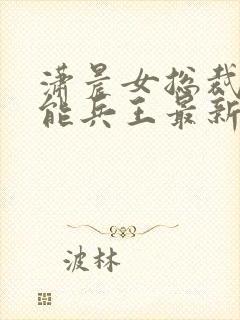 潇晨女总裁
能兵王最新
波林